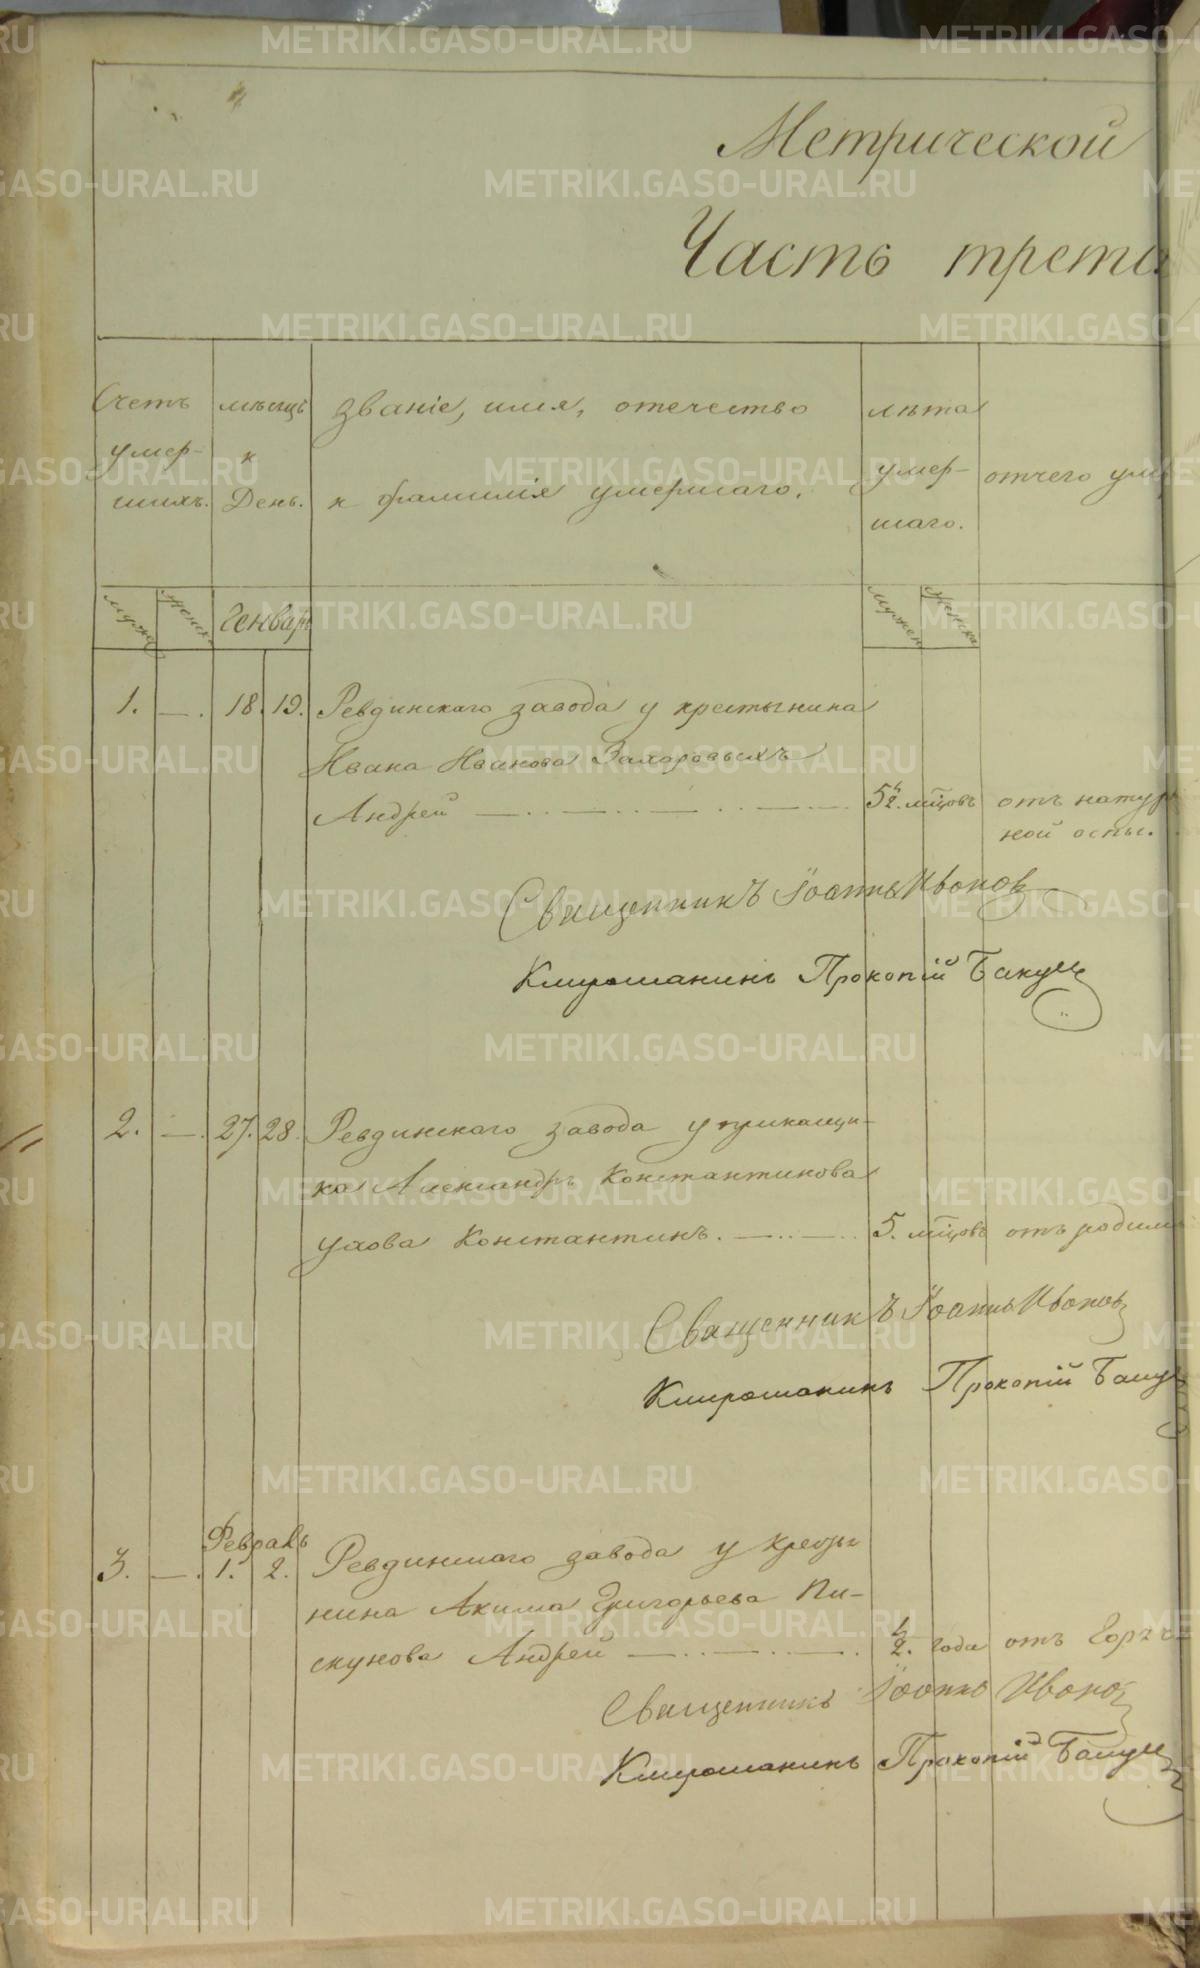 Метрической
Часть трета
Счетъ
умер-
шихъ.
мѣсяцъ
и
День.
Званіе, имя, отечество
и фамилія умершаго.
лѣта
умер-
шаго.
отчего уме
мужеск
женск
Генварь
мужеск
женска
1. — . 18. 19. Ревдинскаго завода у крестьянина
Ивана Иванова Захаровыхъ
Андрей — .. — .. — .. — 5 1/2. мцовъ отъ натур
ной оспы.
Священникъ Іоаннъ Ивонов
Прокопій
2. — . 27. 28. Ревдинскаго завода у прикащи-
ка Александръ Константинова
Ухова Константинъ. — .. — .. 5. мцовъ отъ родим
Священникъ Іоаннъ Ивонов
Прокопій
Февраль
3. — . 1. 2. Ревдинскаго завода у кресть
нина Акима Григорьева Пи-
скунова Андрей — .. — .. — . 1/2. года отъ Горяч
Священникъ Іоаннъ Ивонов
Прокопій
METRIKI.GASO-URAL.RU